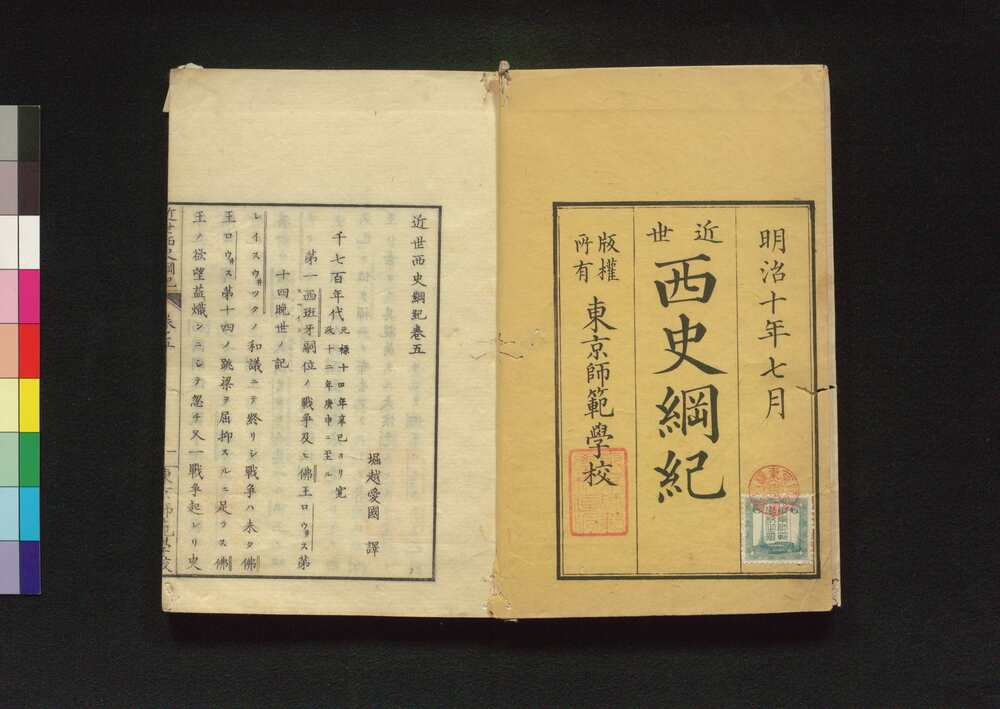 明治十年七月
近世
西史綱紀
版權
所有
東京師範學校
近世西史綱紀卷五
堀越愛國 譯
千七百年代 元祿十四年辛巳ヨリ寛
政十二年庚申ニ至ル
第一西班牙嗣位ノ戰爭及ヒ佛王ロウ井ス第
十四晚世ノ記
レイスウ井ツクノ和議ニテ終リシ戰爭ハ未タ佛
王ロウ井ス第十四ノ跳梁ヲ屈抑スルニ足ラス佛
王ノ欲望益熾ンニシテ忽チ又一戰爭起レリ史
近世西史綱紀
卷之五
一
東京師範學校